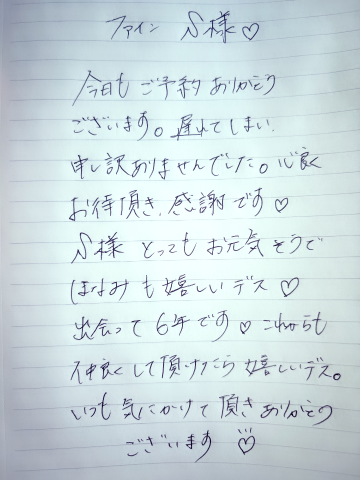 ファイン S様♡
今日も ご予約 ありがとう
ございます。遅れてしまい
申し訳ありませんでした。心良く
お待頂き、感謝です♡
S様 とっても お元気そうで
ほなみも嬉しいデス♡
出会って 6年です♡これからも
仲良くして頂けたら嬉しいデス。
いつも 気にかけて 頂き ありがとう
ございます♡